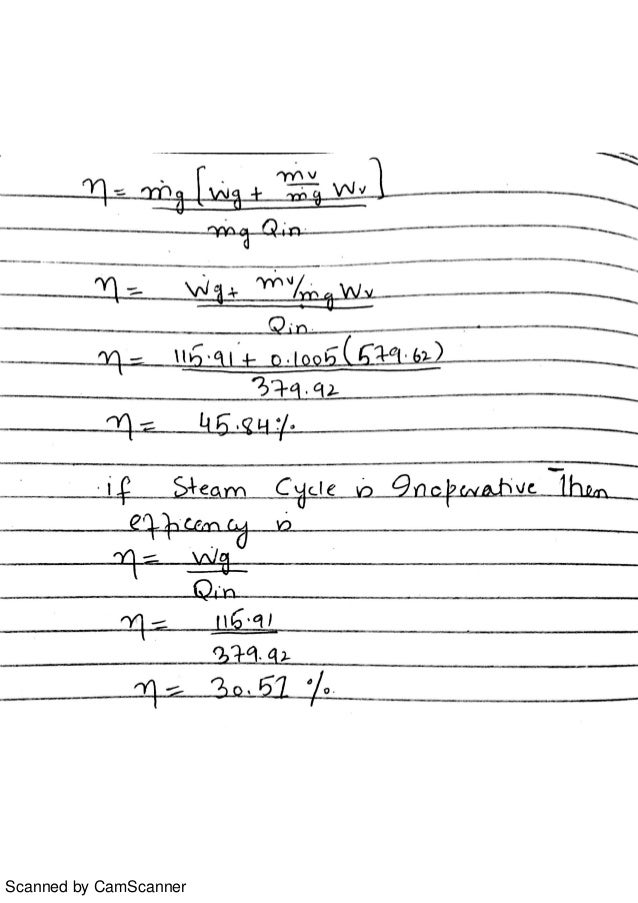 η = ṁg [ẇg + ṁv/ṁg Wv]
ṁg Qin
η = Ẇg + ṁv/ṁg Wv
Qin
η = 115.91 + 0.1005 (579.62)
379.92
η = 45.84 %
if Steam Cycle is Inoperative Then
efficency is
η = Wg
Qin
η = 115.91
379.92
η = 30.51 %
Scanned by CamScanner